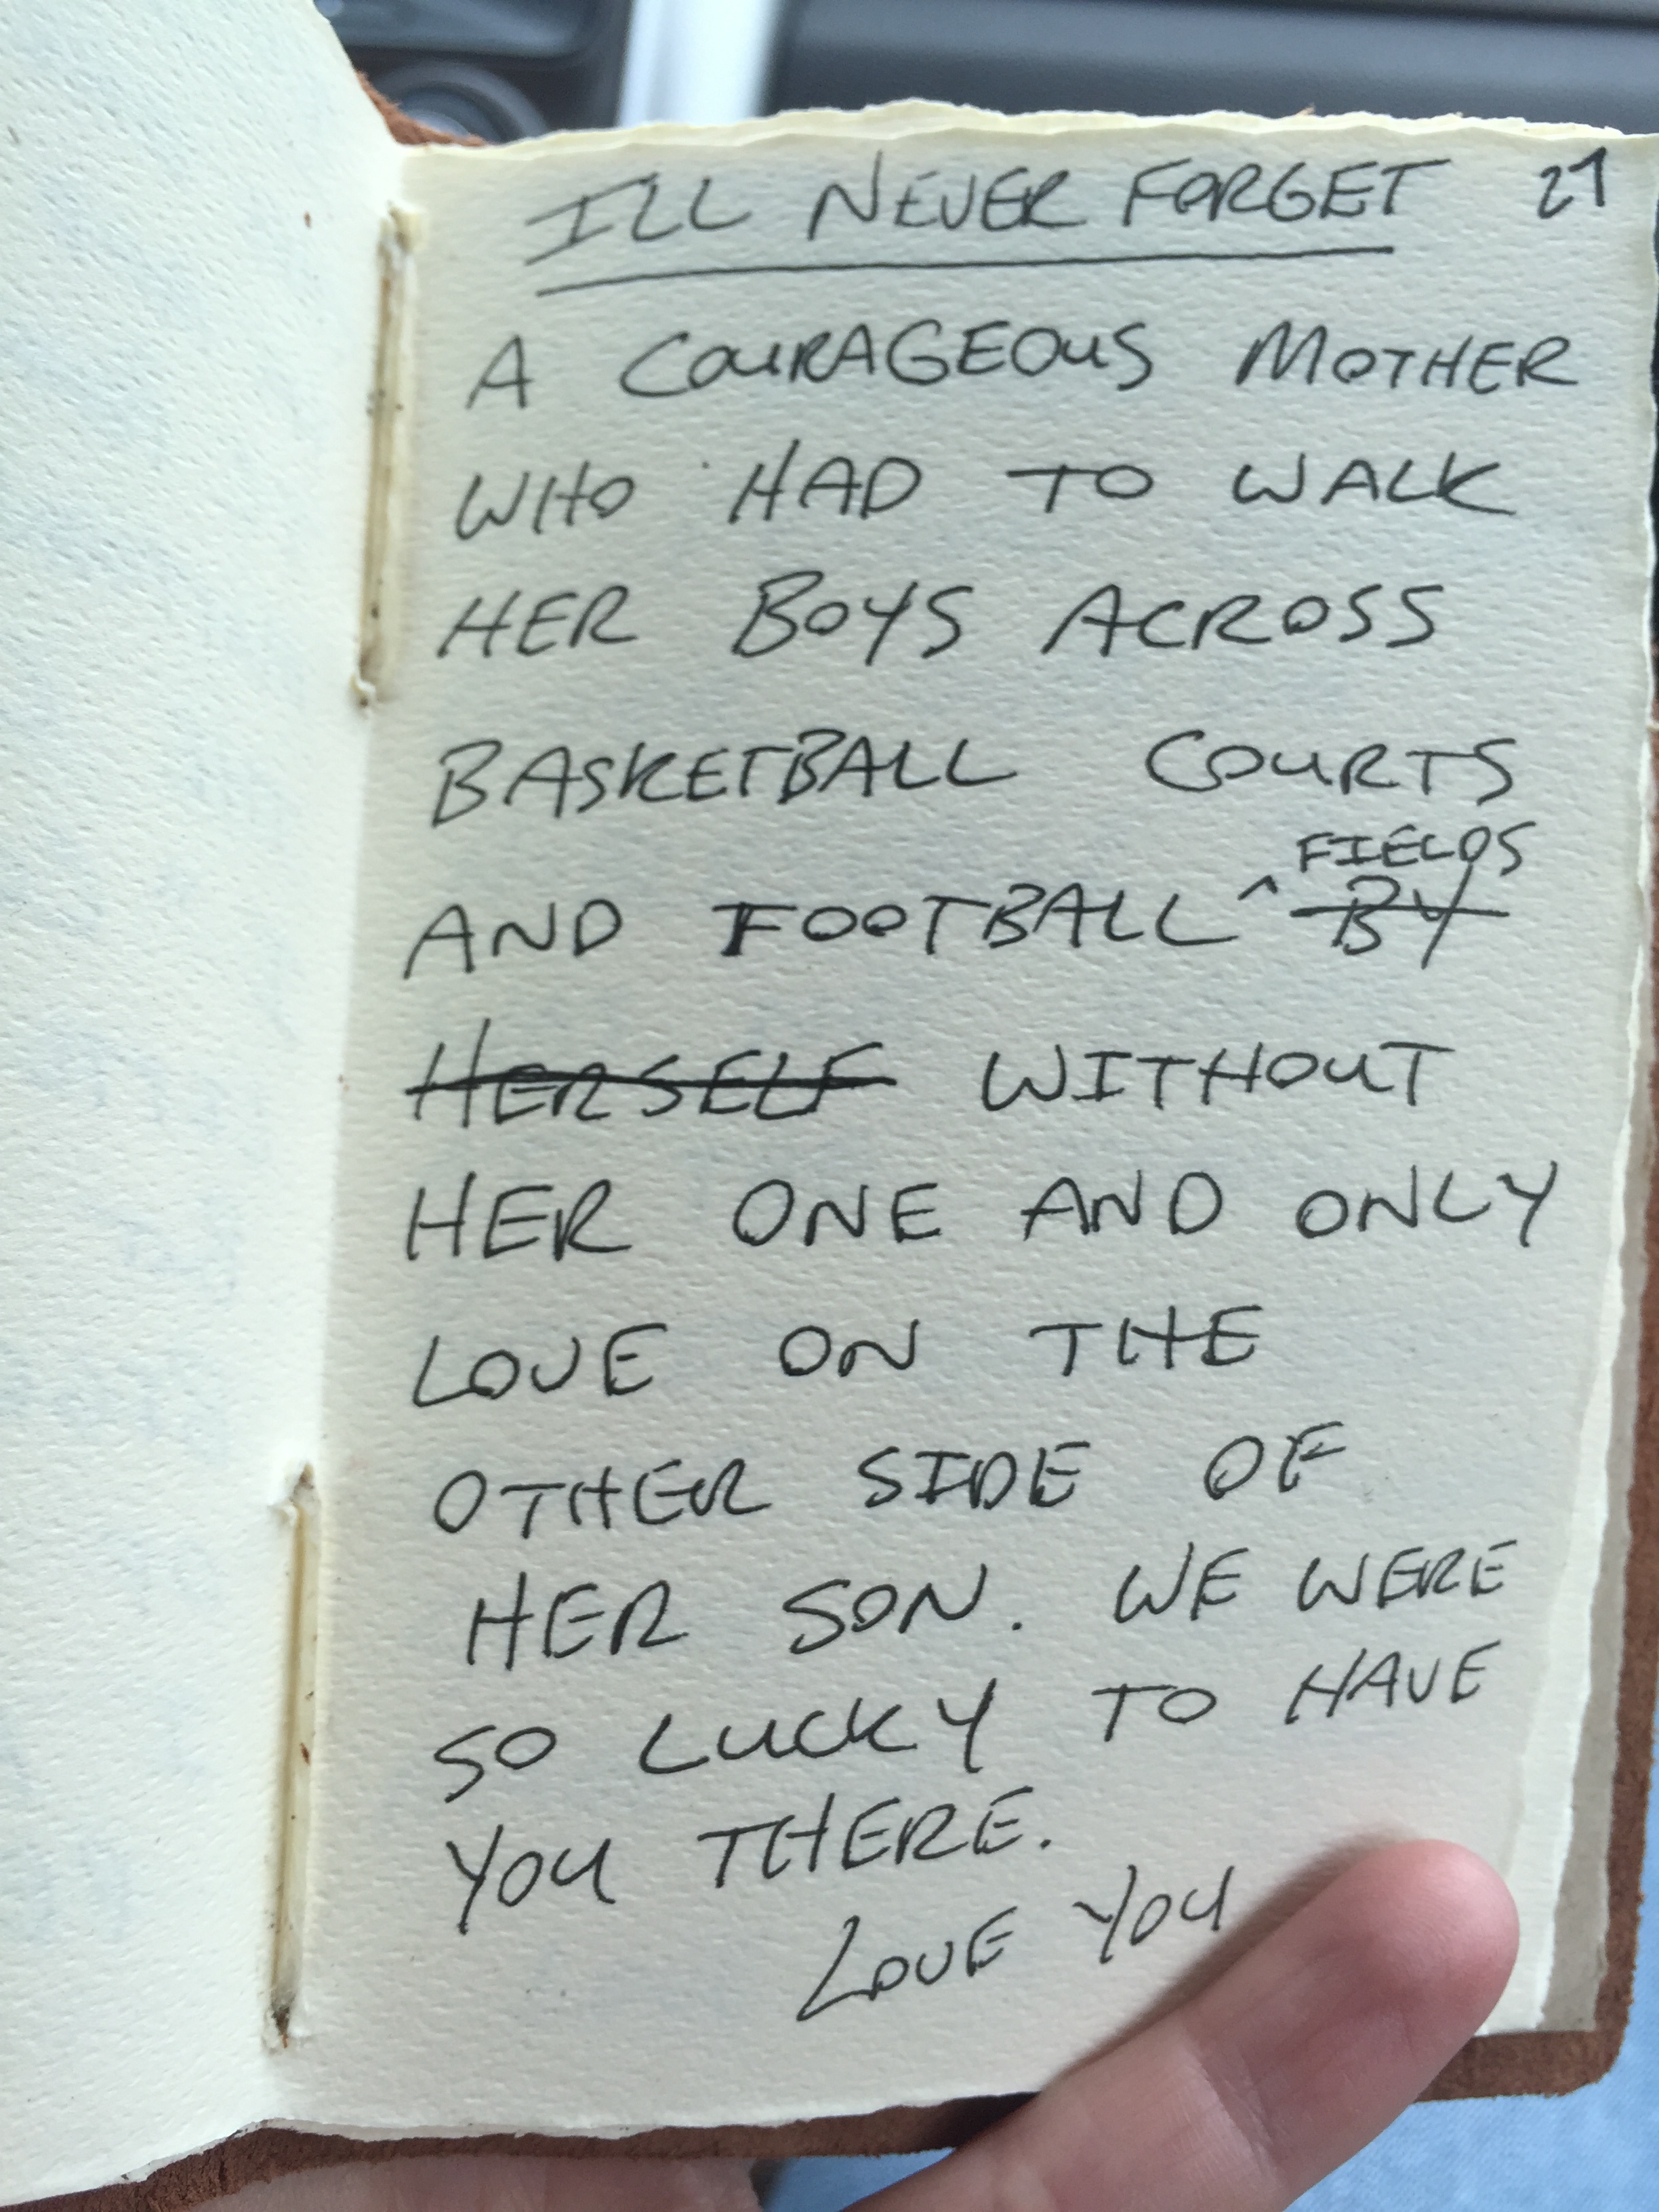 ILL NEVER FORGET 21
A COURAGEOUS MOTHER
WHO HAD TO WALK
HER BOYS ACROSS
BASKETBALL COURTS
AND FOOTBALL ^ FIELDS BY
HERSELF WITHOUT
HER ONE AND ONLY
LOVE ON THE
OTHER SIDE OF
HER SON. WE WERE
SO LUCKY TO HAVE
YOU THERE.
LOVE YOU